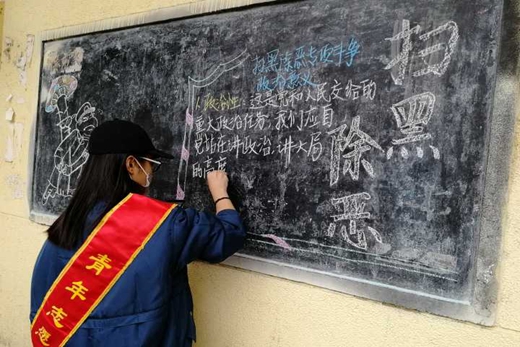 扫黑除恶
扫黑除恶专项斗争
政治意义
政治性：这是党和人民交给的
重大政治任务，我们应自
觉站在讲政治、讲大局
的高度
青年志愿